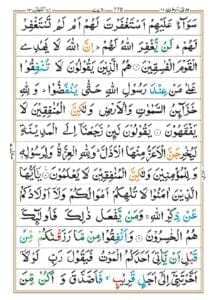 سَوَآءٌ عَلَيْهِمْ اَسْتَغْفَرْتَ لَهُمْ اَمْ لَمْ تَسْتَغْفِرْ
لَهُمْ ؕ لَنْ يَّغْفِرَ اللّٰهُ لَهُمْ ؕ اِنَّ اللّٰهَ لَا يَهْدِى
الْقَوْمَ الْفٰسِقِيْنَ ۞ هُمُ الَّذِيْنَ يَقُوْلُوْنَ لَا تُنْفِقُوْا
عَلٰى مَنْ عِنْدَ رَسُوْلِ اللّٰهِ حَتّٰى يَنْفَضُّوْا ؕ وَلِلّٰهِ
خَزَآئِنُ السَّمٰوٰتِ وَالْاَرْضِ وَلٰكِنَّ الْمُنٰفِقِيْنَ لَا
يَفْقَهُوْنَ ۞ يَقُوْلُوْنَ لَئِنْ رَّجَعْنَاۤ اِلَى الْمَدِيْنَةِ
لَيُخْرِجَنَّ الْاَعَزُّ مِنْهَا الْاَذَلَّ ؕ وَلِلّٰهِ الْعِزَّةُ وَلِرَسُوْلِهٖ
وَلِلْمُؤْمِنِيْنَ وَلٰكِنَّ الْمُنٰفِقِيْنَ لَا يَعْلَمُوْنَ ۞ يٰۤاَيُّهَا
الَّذِيْنَ اٰمَنُوْا لَا تُلْهِكُمْ اَمْوَالُكُمْ وَلَاۤ اَوْلَادُكُمْ
عَنْ ذِكْرِ اللّٰهِ ۚ وَمَنْ يَّفْعَلْ ذٰلِكَ فَاُولٰٓئِكَ
هُمُ الْخٰسِرُوْنَ ۞ وَاَنْفِقُوْا مِنْ مَّا رَزَقْنٰكُمْ مِّنْ
قَبْلِ اَنْ يَّاْتِىَ اَحَدَكُمُ الْمَوْتُ فَيَقُوْلَ رَبِّ لَوْلَاۤ
اَخَّرْتَنِىْۤ اِلٰٓى اَجَلٍ قَرِيْبٍ ۙ فَاَصَّدَّقَ وَاَكُنْ مِّنَ